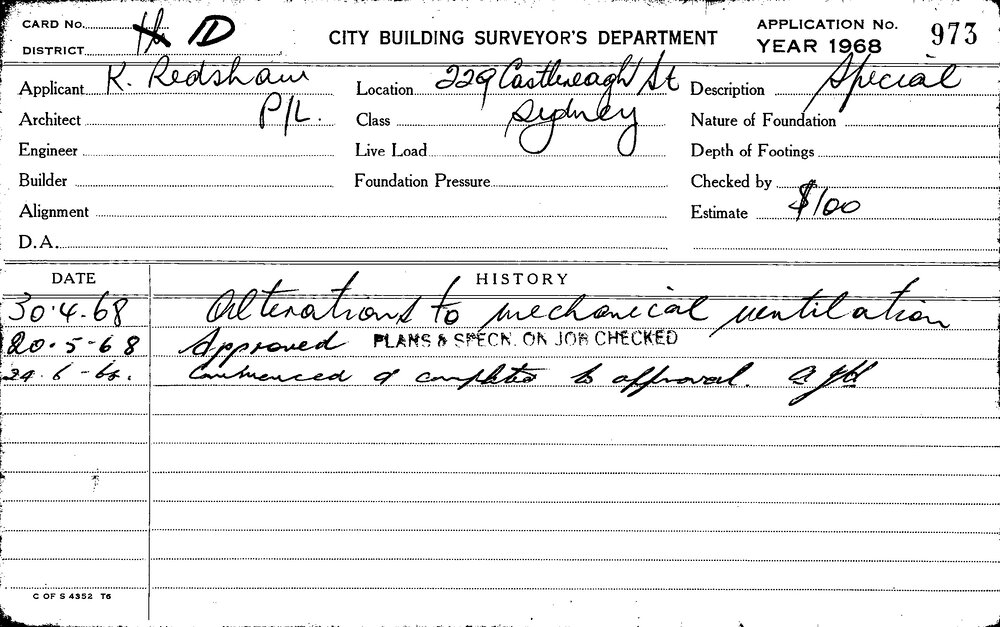 CARD No. D
DISTRICT
CITY BUILDING SURVEYOR'S DEPARTMENT
APPLICATION No. 973
YEAR 1968
Applicant K. Redshaw P/L.
Location 229 Castlereagh St Sydney
Description Special
Architect
Class
Nature of Foundation
Engineer
Live Load
Depth of Footings
Builder
Foundation Pressure
Checked by
Alignment
Estimate $100
D.A.
DATE HISTORY
30.4.68 Alterations to mechanical ventilation
20.5-68 Approved PLANS & SPECN. ON JOB CHECKED
24.6-68. Commenced & completed to approval.
C OF S 4352 T6